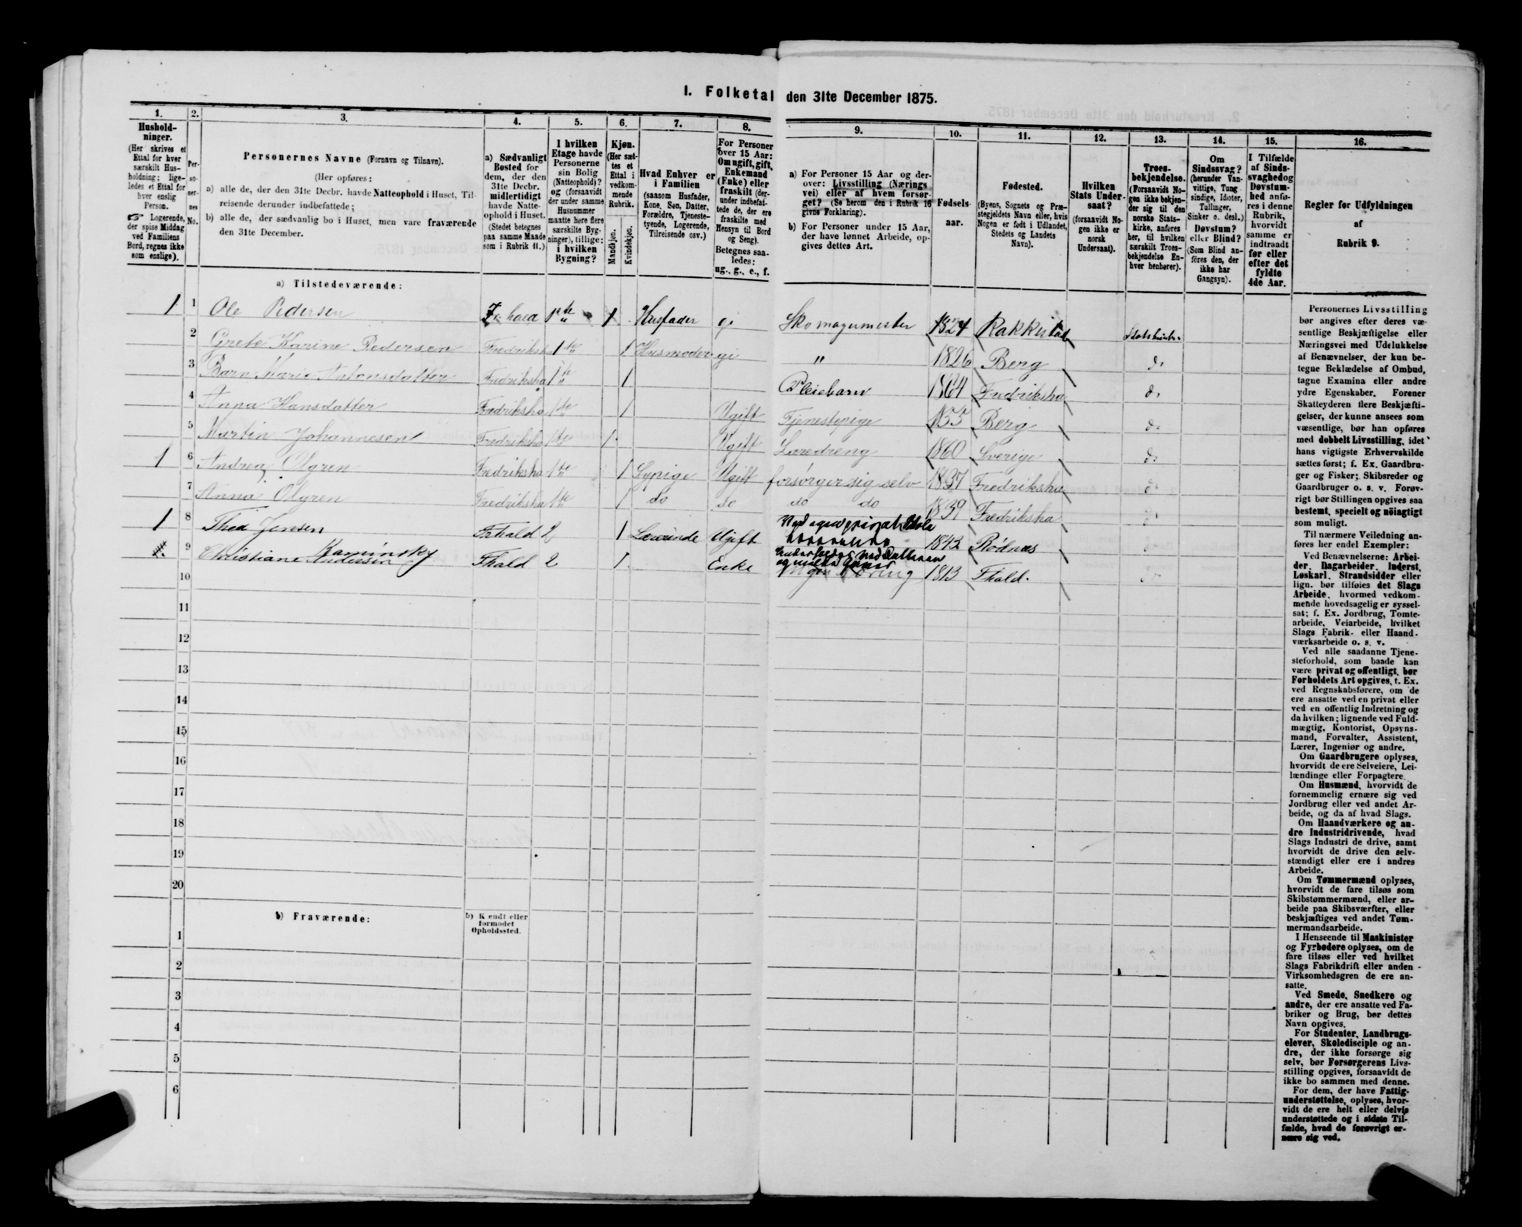 1. Folketal den 31te December 1875.
1. 2. 3. 4. 5. 6. 7. 8. 9. 10. 11. 12. 13. 14. 15. 16.
Hushold-
ninger.
(Her skrives et
Ettal for hver
særskilt Hus-
holdning; lige-
ledes et Ettal for
hver enslig
Person.
☞ Logerende,
der spise Middag
ved Familiens
Bord, regnes ikke
som enslige).
Per-
so-
ner-
nes
No.
Personernes Navne (Fornavn og Tilnavn).
(Her opføres:
a) alle de, der den 31te Decbr. havde Natteophold i Huset, Til-
reisende derunder indbefattede;
b) alle de, der sædvanlig bo i Huset, men vare fraværende
den 31te December.
a) Sædvanligt
Bosted for
dem, der den
31te Decbr.
midlertidigt
havde Natte-
ophold i Huset.
(Stedet betegnes
paa samme Maade
som i Rubrik 11.)
I hvilken
Etage havde
Personerne
sin Bolig
(Natteophold)?
og (forsaavidt
der under samme
Husnummer
maatte høre flere
særskilte Byg-
ninger), tillige:
i hvilken
Bygning?
Kjøn.
(Her sæt-
tes et
Ettal i
vedkom-
mende
Rubrik.
Mandkjøn.
Kvindekjøn.
Hvad Enhver er
i Familien
(saasom Husfader,
Kone, Søn, Datter,
Forældre, Tjeneste-
tyende, Logerende,
Tilreisende osv.)
For Personer
over 15 Aar:
Om ugift, gift,
Enkemand
(Enke) eller
fraskilt (der-
under indbefat-
tede de, der ere
fraskilte med
Hensyn til Bord
og Seng).
Betegnes saa-
ledes:
ug., g., e., f.
a) For Personer 15 Aar og der-
over: Livsstilling (Nærings-
vei) eller af hvem forsør-
get? (Se herom den i Rubrik 16
givne Forklaring).
b) For Personer under 15 Aar,
der have lønnet Arbeide, op-
gives dettes Art.
Fødsels-
aar.
Fødested.
(Byens, Sognets og Præ-
stegjeldets Navn eller, hvis
Nogen er født i Udlandet,
Stedets og Landets
Navn).
Hvilken
Stats Under-
saat?
(forsaavidt No-
gen ikke er
norsk
Undersaat).
Troes-
bekjendelse.
(Forsaavidt No-
gen ikke bekjen-
der sig til den
norske Stats-
kirke, anføres
her, til hvilken
særskilt Troes-
bekjendelse En-
hver henhører).
Om
Sindssvag?
(herunder Van-
vittige, Tung-
sindige, Idioter,
Tullinger,
Sinker o. desl.)
Døvstum?
eller Blind?
(Som Blind an-
føres den, der
ikke har
Gangsyn).
I Tilfælde
af Sinds-
svaghed og
Døvstum-
hed anfø-
res i denne
Rubrik,
hvorvidt
samme er
indtraadt
før eller
efter det
fyldte
4de Aar.
Regler for Udfyldningen
af
Rubrik 9.
a) Tilstedeværende:
1 1 Ole Pedersen F. hald 1ste 1 Husfader gi Skomagermester 1824 Rakkestad Statskirk.
2 Grete Karine Pedersen Fredriksh 1ste 1 Husmoder gi " 1826 Berg do
3 Barn Marie Antonsdatter Fredriksha 1ste 1 Pleiebarn 1864 Fredriksha do
4 Anna Hansdatter Fredriksha 1ste 1 Ugift Tjenestepige 1855 Berg do
5 Martin Johannesen Fredriksha 1ste 1 Ugift Læredreng 1860 Sverige do
1 6 Andrea Olgren Fredriksha 1ste 1 Sypige Ugift forsørger sig selv 1837 Fredriksha do
7 Anna Olgren Fredriksha 1ste 1 do do do do 1839 Fredriksha do
1 8 Thea Jensen F.hald 2 1 Ugift 1842 Rødnæs
1 9 Christiane Andersen Kaminsky F.hald 2 1 Enke 1813 F.hald. do
10
11
12
13
14
15
16
17
18
19
20
b) Fraværende:
b) Kjendt eller
formodet
Opholdssted.
1
2
3
4
5
6
Personernes Livsstilling
bør angives efter deres væ-
sentlige Beskjæftigelse eller
Næringsvei med Udelukkelse
af Benævnelser, der kun be-
tegne Beklædelse af Ombud,
tagne Examina eller andre
ydre Egenskaber. Forener
Skatteyderen flere Beskjæfti-
gelser, der kunne ansees som
væsentlige, bør han opføres
med dobbelt Livsstilling, idet
hans vigtigste Erhvervskilde
sættes først; f. Ex. Gaardbru-
ger og Fisker; Skibsreder og
Gaardbruger o. s. v. Forøv-
rigt bør Stillingen opgives saa
bestemt, specielt og nøiagtigt
som muligt.
Til nærmere Veiledning an-
føres her endel Exempler:
Ved Benævnelserne: Arbei-
der, Dagarbeider, Inderst,
Løskarl, Strandsidder eller
lign. bør tilføies det Slags
Arbeide, hvormed vedkom-
mende hovedsagelig er syssel-
sat; f. Ex. Jordbrug, Tomte-
arbeide, Veiarbeide, hvilket
Slags Fabrik- eller Haand-
værksarbeide o. s. v.
Ved alle saadanne Tjene-
steforhold, som baade kan
være privat og offentligt, bør
Forholdets Art opgives, t. Ex.
ved Regnskabsførere, om de
ere ansatte ved en privat eller
ved en offentlig Indretning og
da hvilken; lignende ved Fuld-
mægtig, Kontorist, Opsyns-
mand, Forvalter, Assistent,
Lærer, Ingeniør og andre.
Om Gaardbrugere oplyses,
hvorvidt de ere Selveiere, Lei-
lændinge eller Forpagtere.
Om Husmænd, hvorvidt de
fornemmelig ernære sig ved
Jordbrug eller ved andet Ar-
beide, og da af hvad Slags.
Om Haandværkere og an-
dre Industridrivende, hvad
Slags Industri de drive, samt
hvorvidt de drive den selv-
stændigt eller ere i andres
Arbeide.
Om Tømmermænd oplyses,
hvorvidt de fare tilsøs som
Skibstømmermænd, eller ar-
beide paa Skibsværfter, eller
beskjæftiges ved andet Tøm-
mermandsarbeide.
I Henseende til Maskinister
og Fyrbødere oplyses, om de
fare tilsøs eller ved hvilket
Slags Fabrikdrift eller anden
Virksomhedsgren de ere an-
satte.
Ved Smede, Snedkere og
andre, der ere ansatte ved Fa-
briker og Brug, bør dettes
Navn opgives.
For Studenter, Landbrugs-
elever, Skoledisciple og an-
dre, der ikke forsørge sig
selv, bør Forsørgerens Livs-
stilling opgives, forsaavidt de
ikke bo sammen med denne.
For dem, der have Fattig-
understøttelse, oplyses, hvor-
vidt de ere helt eller delvis
understøttede og i sidste Til-
fælde, hvad de forøvrigt er-
nære sig ved.